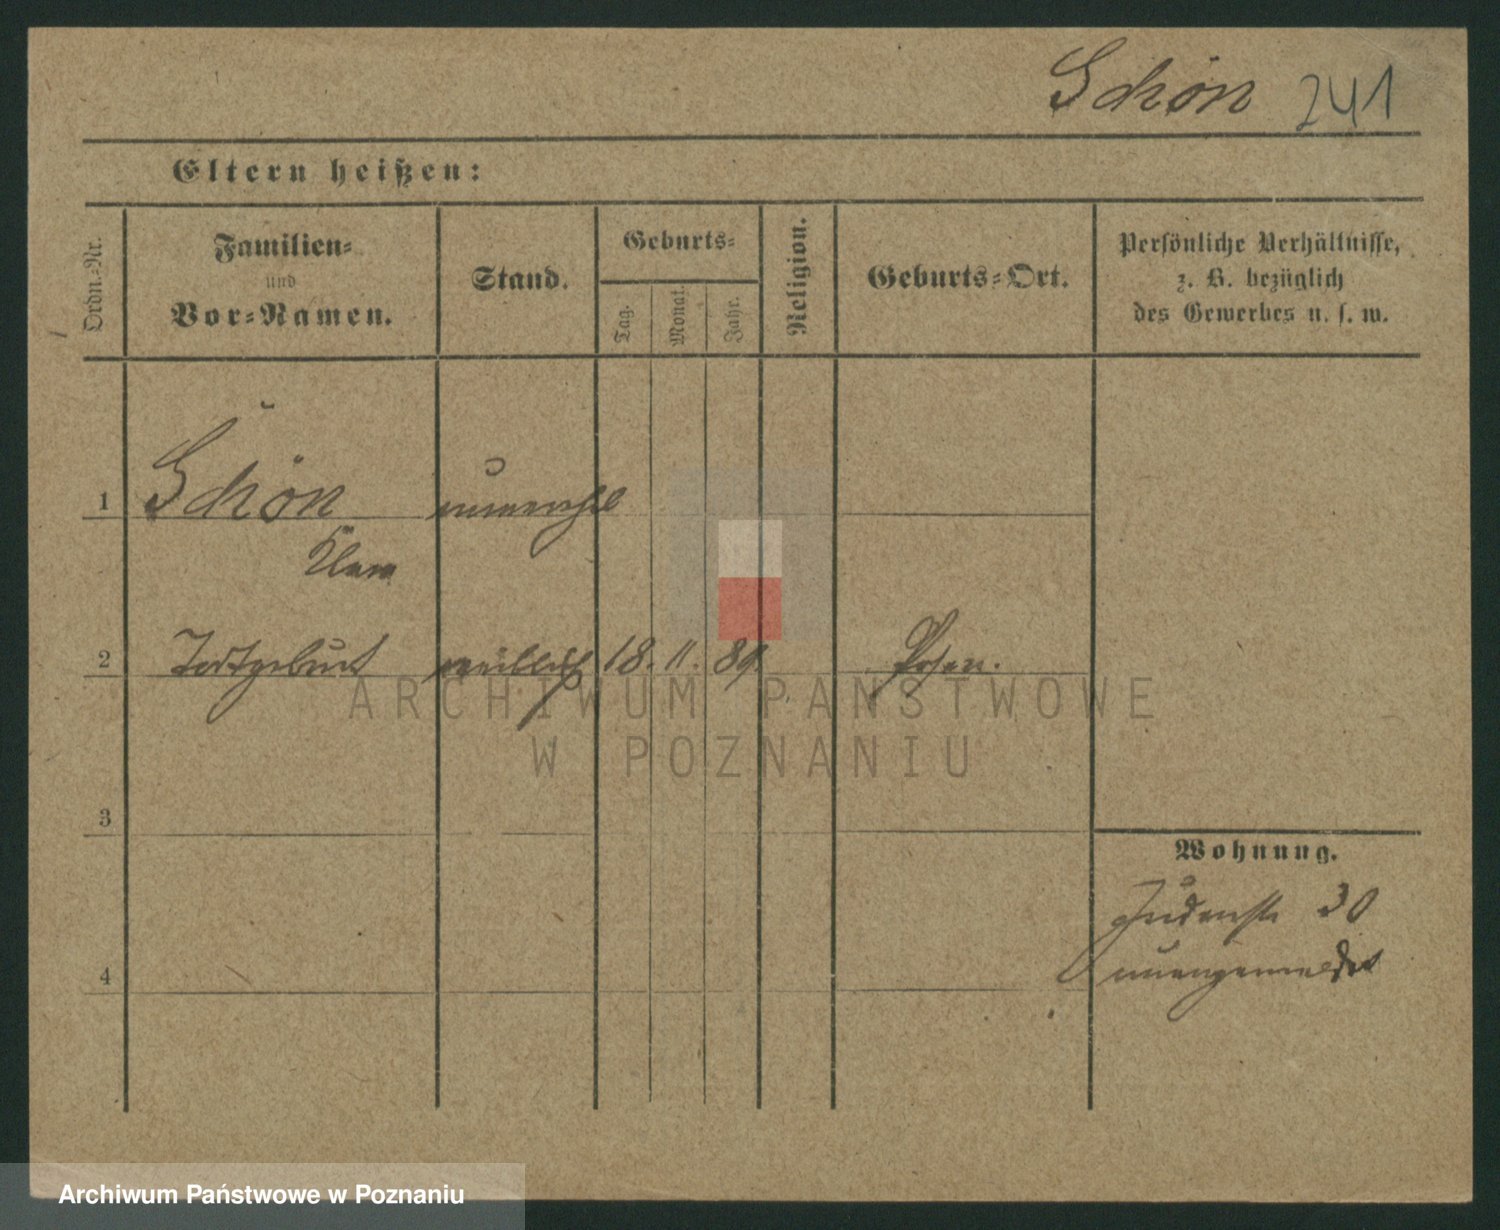 Schön 241
Eltern heißen:
Ordn.-Nr.
Familien-
und
Vor-Namen.
Stand.
Geburts-
Tag.
Monat.
Jahr.
Religion.
Geburts-Ort.
Persönliche Verhältnisse,
z. B. bezüglich
des Gewerbes u. s. w.
1 Schön unverehl
Clara
2 Todtgeburt weiblich 18. 11. 89. Posen.
3
4
Wohnung.
Judenstr 30
unangemeldet
ARCHIWUM PAŃSTWOWE
W POZNANIU
Archiwum Państwowe w Poznaniu